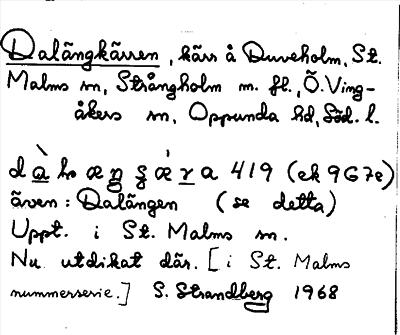 Dalängkärren, kärr å Duveholm, St.
Malms sn, Strångholm m. fl., Ö. Ving-
åkers sn, Oppunda hd, Söd. l.
419 (ek 967e)
även: Dalängen (se detta)
Uppt. i St. Malms sn.
Nu utdikat där. [i St. Malms
nummerserie.] S. Strandberg 1968